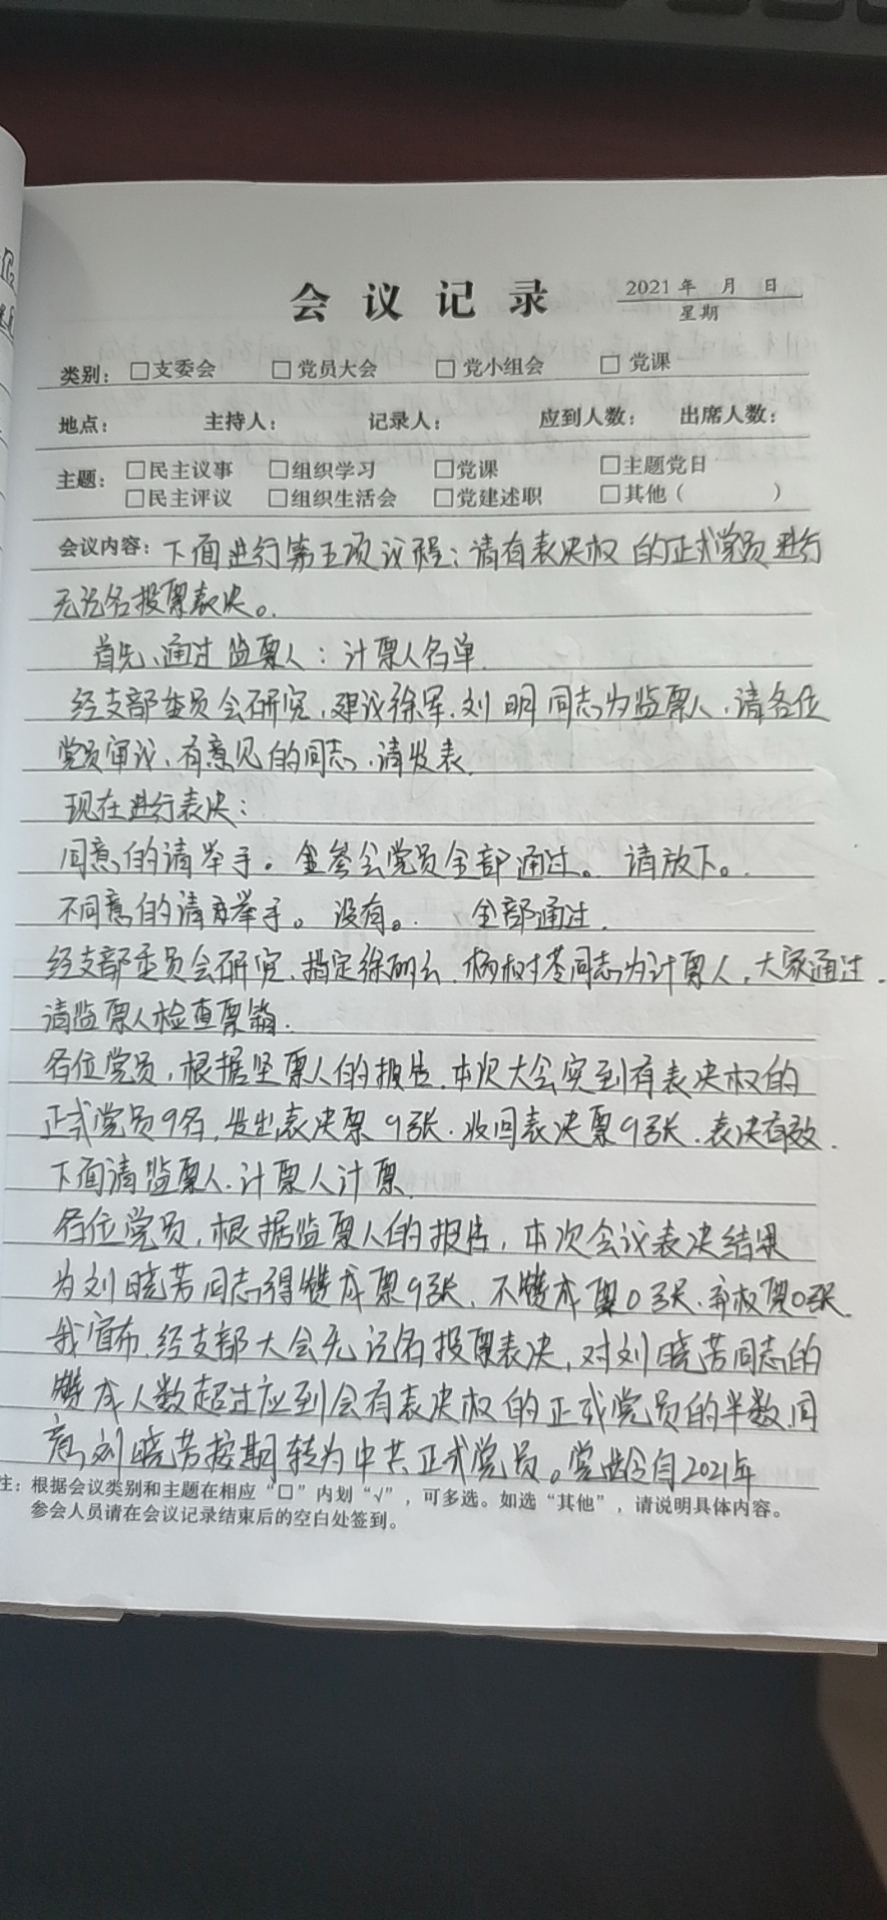 会议记录 2021年 月 日
星期
类别：□支委会 □党员大会 □党小组会 □党课
地点： 主持人： 记录人： 应到人数： 出席人数：
主题：□民主议事 □组织学习 □党课 □主题党日
□民主评议 □组织生活会 □党建述职 □其他（ ）
会议内容：下面进行第五项议程：请有表决权的正式党员进行
无记名投票表决。
首先、通过监票人：计票人名单.
经支部委员会研究，建议徐军、刘明同志为监票人，请各位
党员审议、有意见的同志，请发表.
现在进行表决：
同意的请举手。 参会党员全部通过。 请放下。
不同意的请举手。 没有。 全部通过.
经支部委员会研究、指定徐丽云、杨树苍同志为计票人，大家通过.
请监票人检查票箱.
各位党员，根据坚票人的报告.本次大会实到有表决权的
正式党员9名，发出表决票9张.收回表决票9张.表决有效.
下面请监票人.计票人计票.
各位党员，根据监票人的报告，本次会议表决结果
为刘晓芳同志得赞成票9张，不赞成票0张.弃权票0张.
我宣布.经支部大会无记名投票表决，对刘晓芳同志的
赞成人数超过应到会有表决权的正式党员的半数同
意刘晓芳按期转为中共正式党员。党龄自2021年
注：根据会议类别和主题在相应“□”内划“√”，可多选。如选“其他”，请说明具体内容。
参会人员请在会议记录结束后的空白处签到。